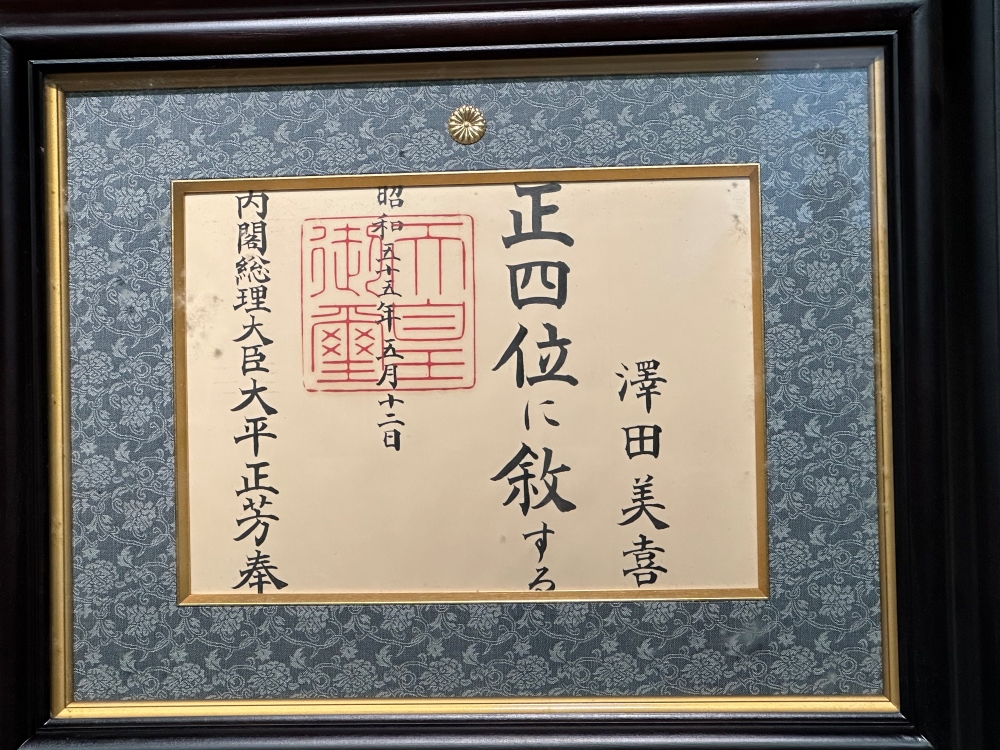 澤田美喜
正四位に敘する
昭和五十五年五月十二日
天皇御璽
内閣総理大臣大平正芳奉